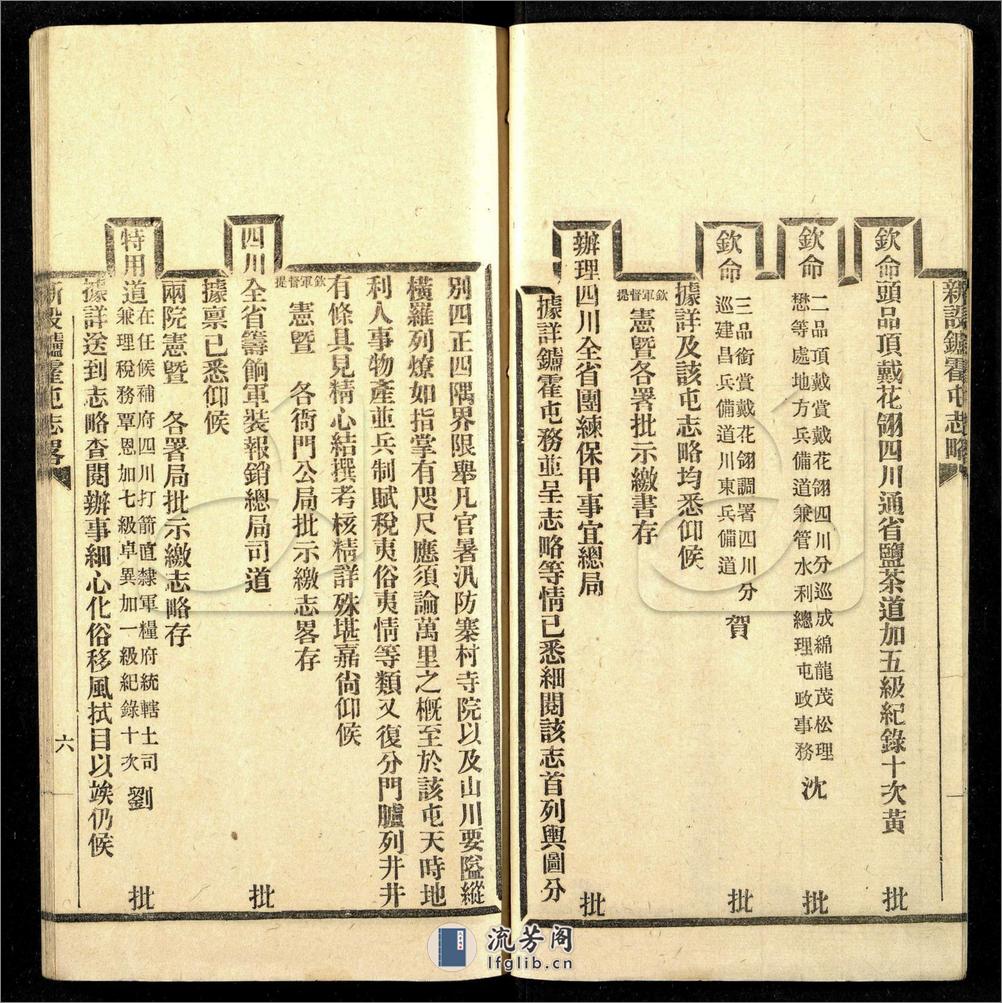 新設鑪霍屯志略
欽命頭品頂戴花翎四川通省鹽茶道加五級紀錄十次黃 批
欽命
二品頂戴賞戴花翎四川分巡成綿龍茂松理
懋等處地方兵備道兼管水利總理屯政事務
沈 批
欽命
三品銜賞戴花翎調署四川分
巡建昌兵備道川東兵備道
賀 批
據詳及該屯志略均悉仰候
欽軍督提
憲暨各署批示繳書存
辦理四川全省團練保甲事宜總局 批
據詳鑪霍屯務並呈志略等情已悉細閱該志首列輿圖分
別四正四隅界限舉凡官署汛防寨村寺院以及山川要隘縱
橫羅列燎如指掌有咫尺應須論萬里之概至於該屯天時地
利人事物產並兵制賦稅夷俗夷情等類又復分門臚列井井
有條具見精心結撰考核精詳殊堪嘉尙仰候
欽軍督提
憲暨 各衙門公局批示繳志畧存
四川全省籌餉軍裝報銷總局司道 批
據稟已悉仰候
兩院憲暨 各署局批示繳志略存
特用道
在任候補府四川打箭直隸軍糧府統轄土司
兼理稅務覃恩加七級卓異加一級紀錄十次
劉 批
據詳送到志略查閱辦事細心化俗移風拭目以竢仍候
新設鑪霍屯志畧
六
流芳阁
lfglib.cn